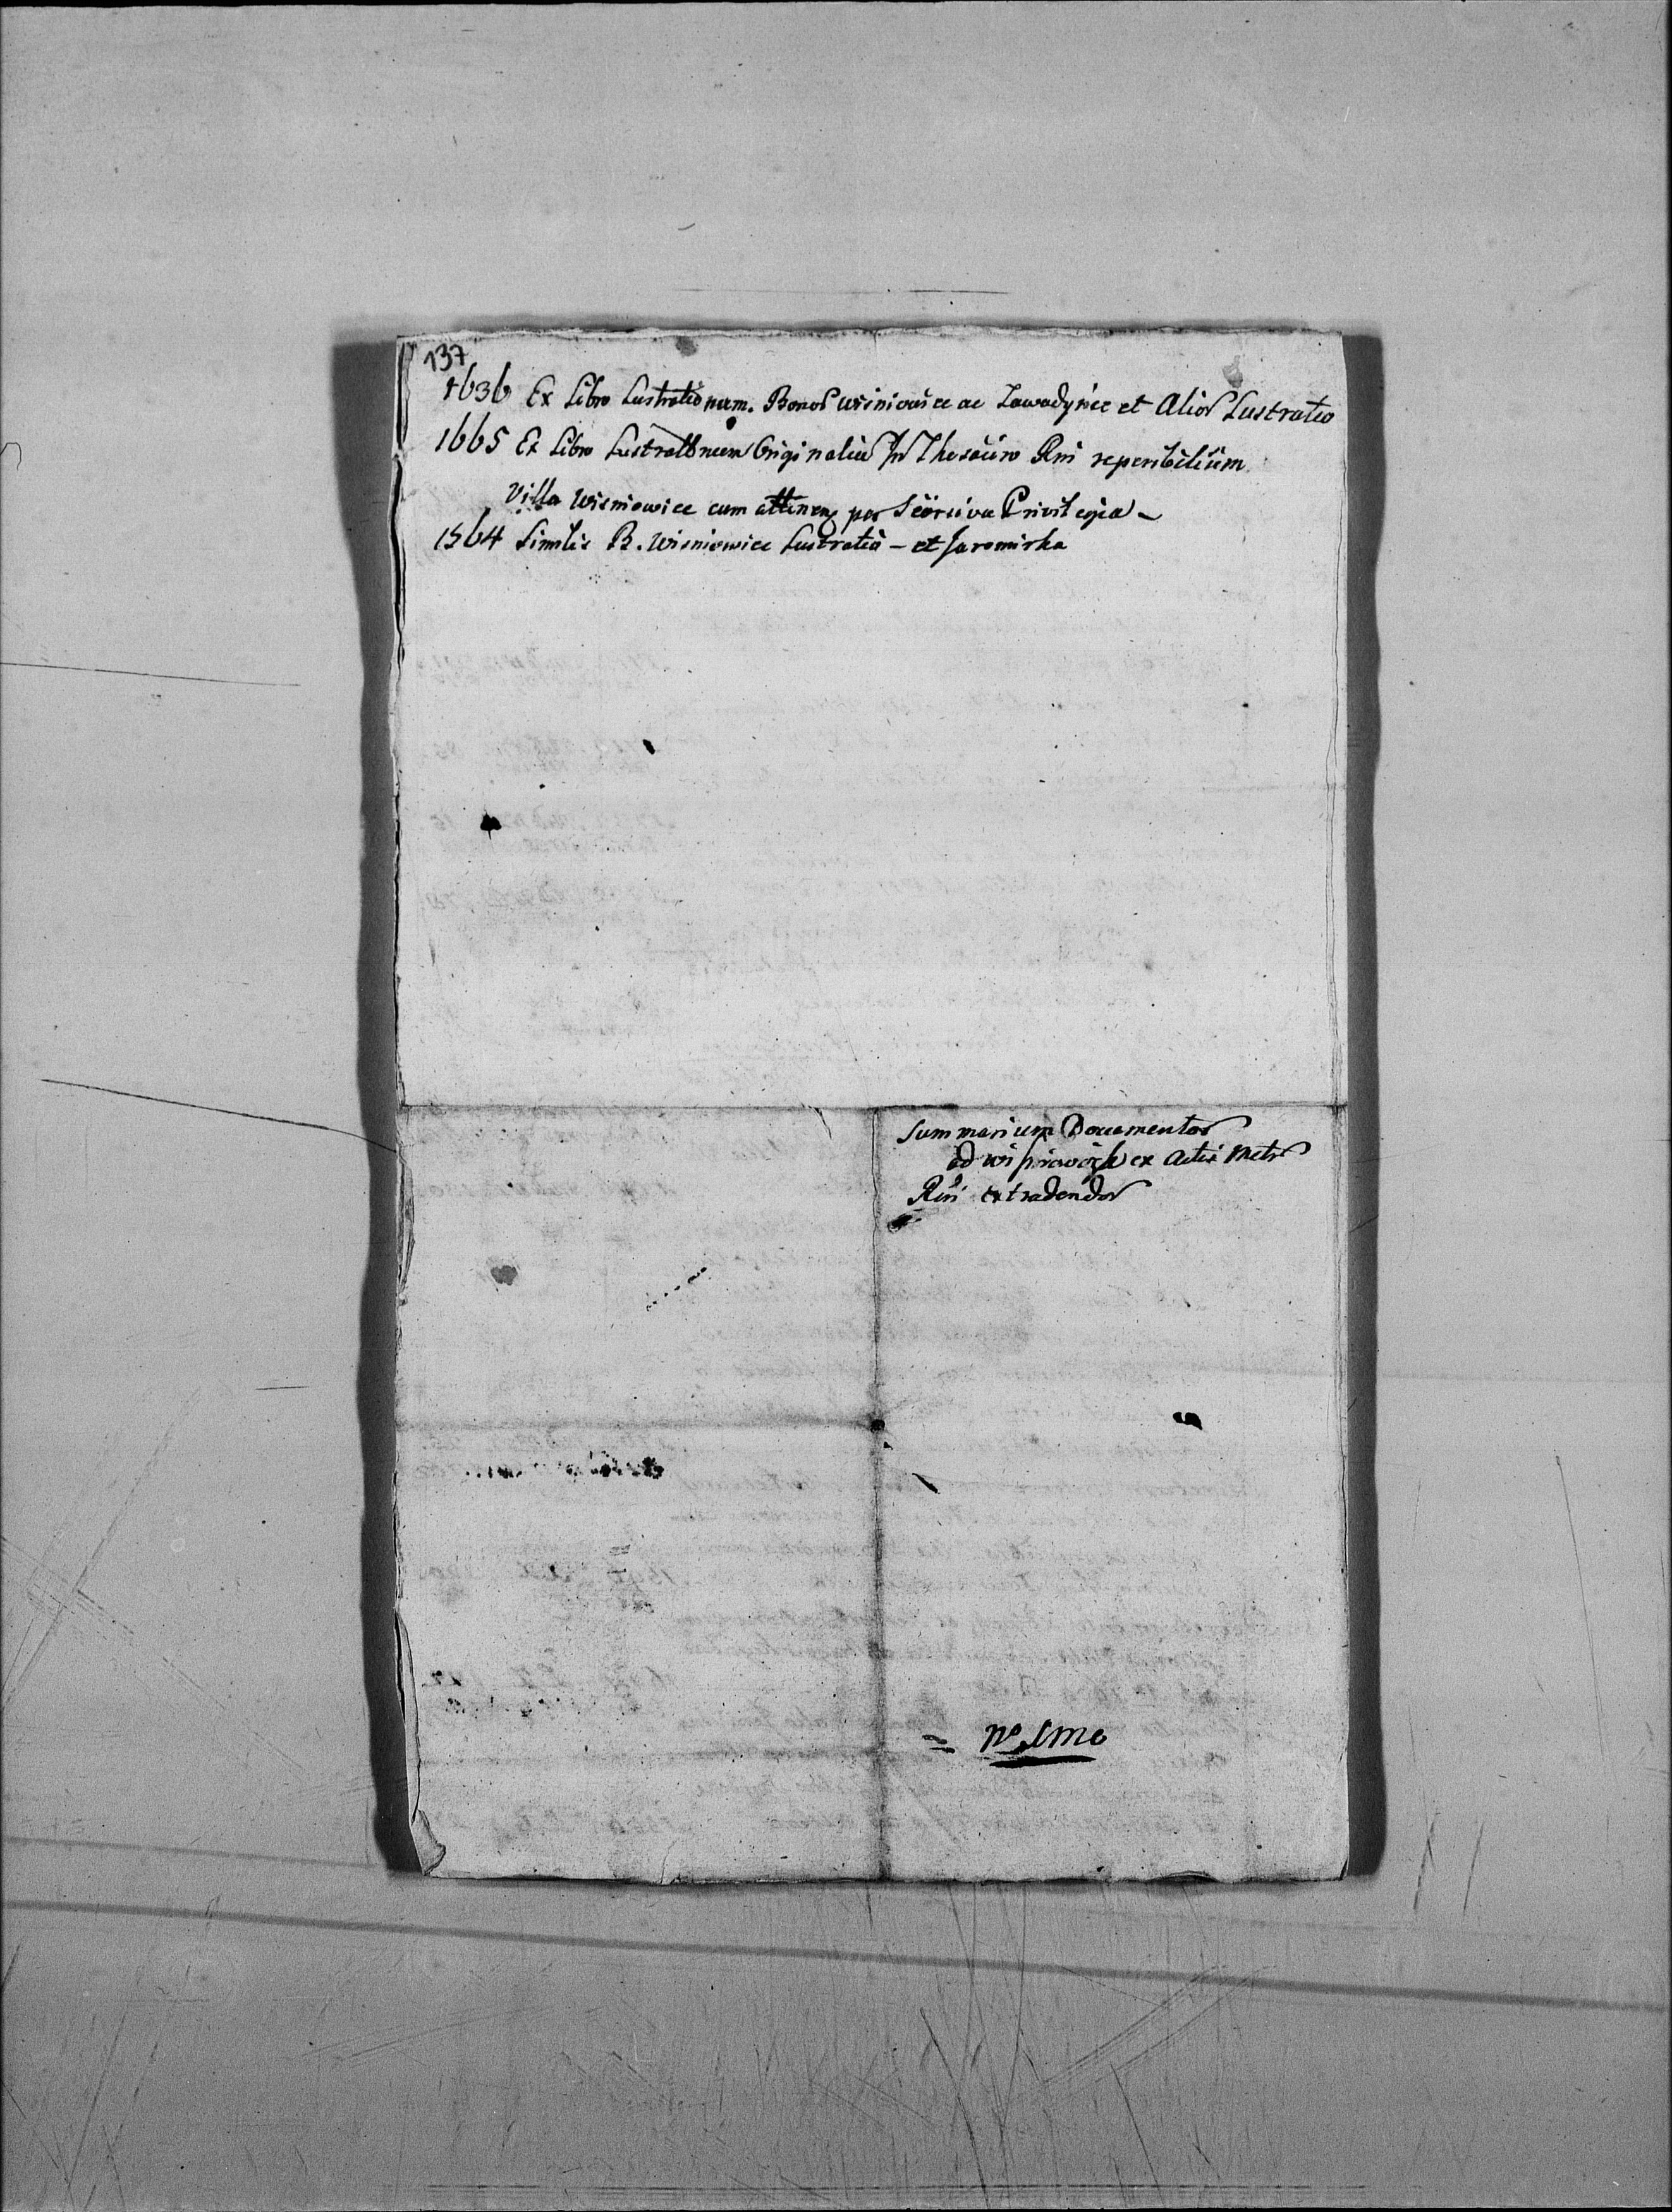 137
1636 Ex Libro Lustrationum. Bonor Wisniowice ac Zawadynce et Alior Lustratio
1665 Ex Libro Lustrationum Originaliu In Thesauro Rni reperibilium
Villa Wisniowice cum attinen per Seorsiva Privilegia –
1564 Similis B. Wisniowice Lustratio – et Jaromirka
Summarium Documentor
ex Actis Metr
Rni extradendor
= No